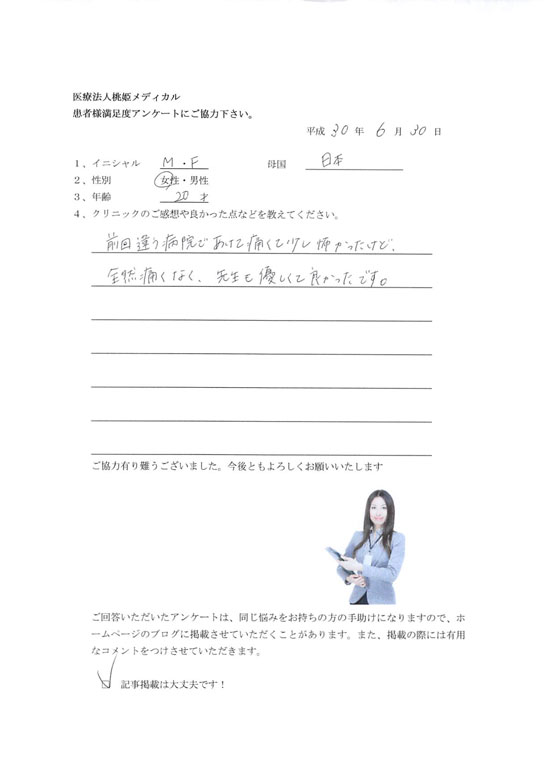 医療法人桃姫メディカル
患者様満足度アンケートにご協力下さい。
平成 30 年 6 月 30 日
1、イニシャル M・F 母国 日本
2、性別 女性・男性
3、年齢 20才
4、クリニックのご感想や良かった点などを教えてください。
前回違う病院であけて痛くて少し怖かったけど、
全然痛くなく、先生も優しくて良かったです。
ご協力有り難うございました。今後ともよろしくお願いいたします
ご回答いただいたアンケートは、同じ悩みをお持ちの方の手助けになりますので、ホ
ームページのブログに掲載させていただくことがあります。また、掲載の際には有用
なコメントをつけさせていただきます。
☑ 記事掲載は大丈夫です！